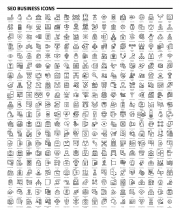 SEO BUSINESS ICONS